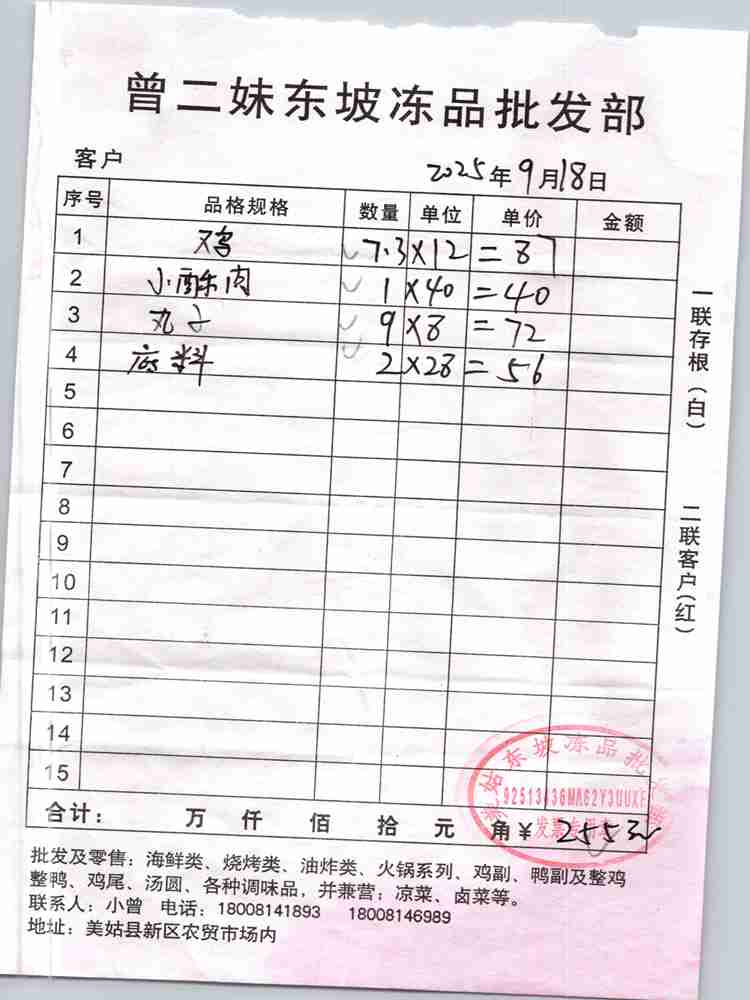 曾二妹东坡冻品批发部
客户 2025年9月18日
序号 品格规格 数量 单位 单价 金额
1 鸡 7.3×12=87
2 小酥肉 1×40=40
3 丸子 9×8=72
4 底料 2×28=56
5
6
7
8
9
10
11
12
13
14
15
合计: 万 仟 佰 拾 元 角¥255元
批发及零售:海鲜类、烧烤类、油炸类、火锅系列、鸡副、鸭副及整鸡
整鸭、鸡尾、汤圆、各种调味品,并兼营:凉菜、卤菜等。
联系人:小曾 电话:18008141893 18008146989
地址:美姑县新区农贸市场内
一联存根(白)
二联客户(红)
姑东坡冻品批
发票专用章